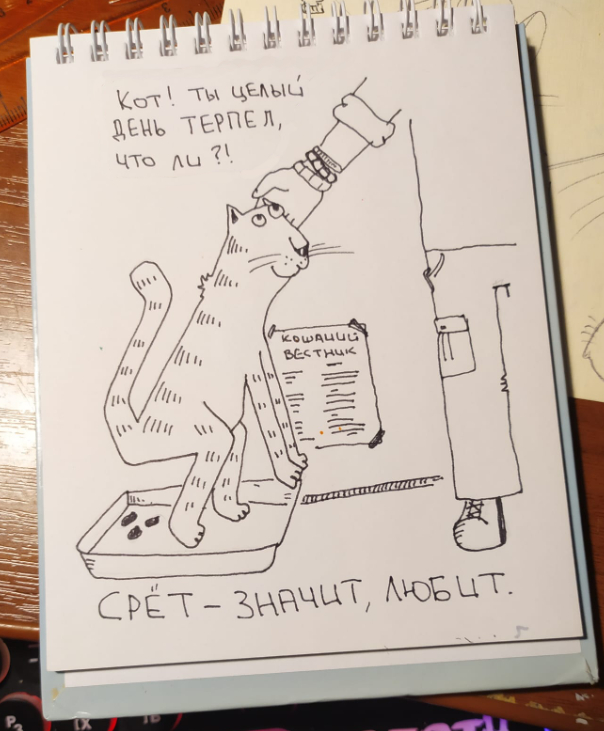 Кот! ты целый
день терпел,
что ли?!
КОШАЧИЙ
ВЕСТНИК
СРЁТ - ЗНАЧИТ, ЛЮБИТ.